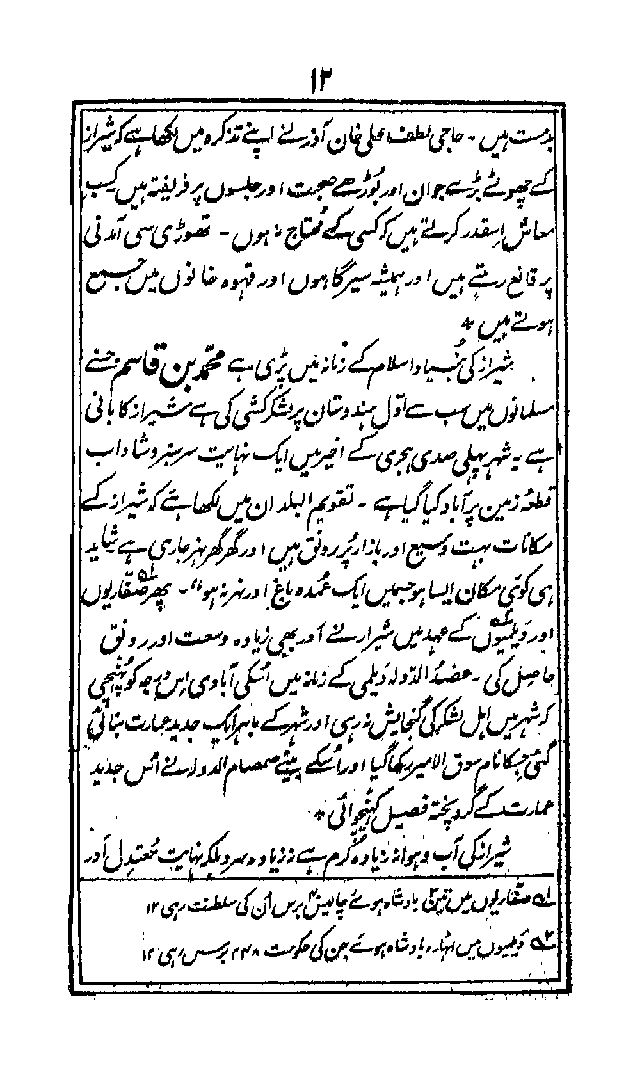 ۱۲
بدمست ہیں ۔ حاجی لطف علی خان آذر نے اپنے تذکرہ میں لکھا ہے کہ شیراز
کے چھوٹے بڑے جوان اور بوڑھے صحبت اور جلسوں پر فریفتہ ہیں کسب
معاش اسقدر کرتے ہیں کہ کسی کے محتاج نہوں ۔ تھوڑی سی آمدنی
پر قانع رہتے ہیں اور ہمیشہ سیر گاہوں اور قہوہ خانوں میں جمع
ہوتے ہیں *
شیراز کی بنیاد اسلام کے زمانہ میں پڑی ہے محمد بن قاسم جسنے
مسلمانوں میں سب سے اوّل ہندوستان پر لشکر کشی کی ہے شیراز کا بانی
ہے ۔ شہر پہلی صدی ہجری کے اخیر میں ایک نہایت سرسبز و شاداب
قطعہ زمین پر آباد کیا گیا ہے ۔ تقویم البلدان میں لکھا ہے کہ شیراز کے
مکانات بہت وسیع اور بازار پُر رونق ہیں اور گھر گھر نہر جاری ہے شاید
ہی کوئی مکان ایسا ہو جسمیں ایک عمدہ باغ اور نہر نہو" ۔ پھر صفاریوں
اور دیلمیوں کے عہد میں شیراز نے اور بھی زیادہ وسعت اور رونق
حاصل کی ۔ عضد الدولہ دیلمی کے زمانہ میں اسکی آبادی اس درجہ کو پہنچی
کہ شہر میں اہل لشکر کی گنجایش نہ رہی اور شہر کے باہر ایک جدید عمارت بنائی
گئی جسکا نام سوق الامیر رکھا گیا اور اُسکے بیٹے صمصام الدولہ نے اس جدید
عمارت کے گرد پختہ فصیل کھنچوائی *
شیراز کی آب و ہوا نہ زیادہ گرم ہے نہ زیادہ سرد بلکہ نہایت معتدل اور
۱؎ صفاریوں میں تین بادشاہ ہوئے چالیس برس اُن کی سلطنت رہی ۱۲
۲؎ دیلمیوں میں اٹھارہ بادشاہ ہوئے جن کی حکومت ۲۳۸ برس رہی ۱۲